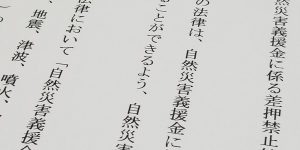 然災害義援金に係る差押禁止
の法律は、自然災害義援金に
ることができるよう、自然災
法律において「自然災害義援金
、地震、津波、噴火、